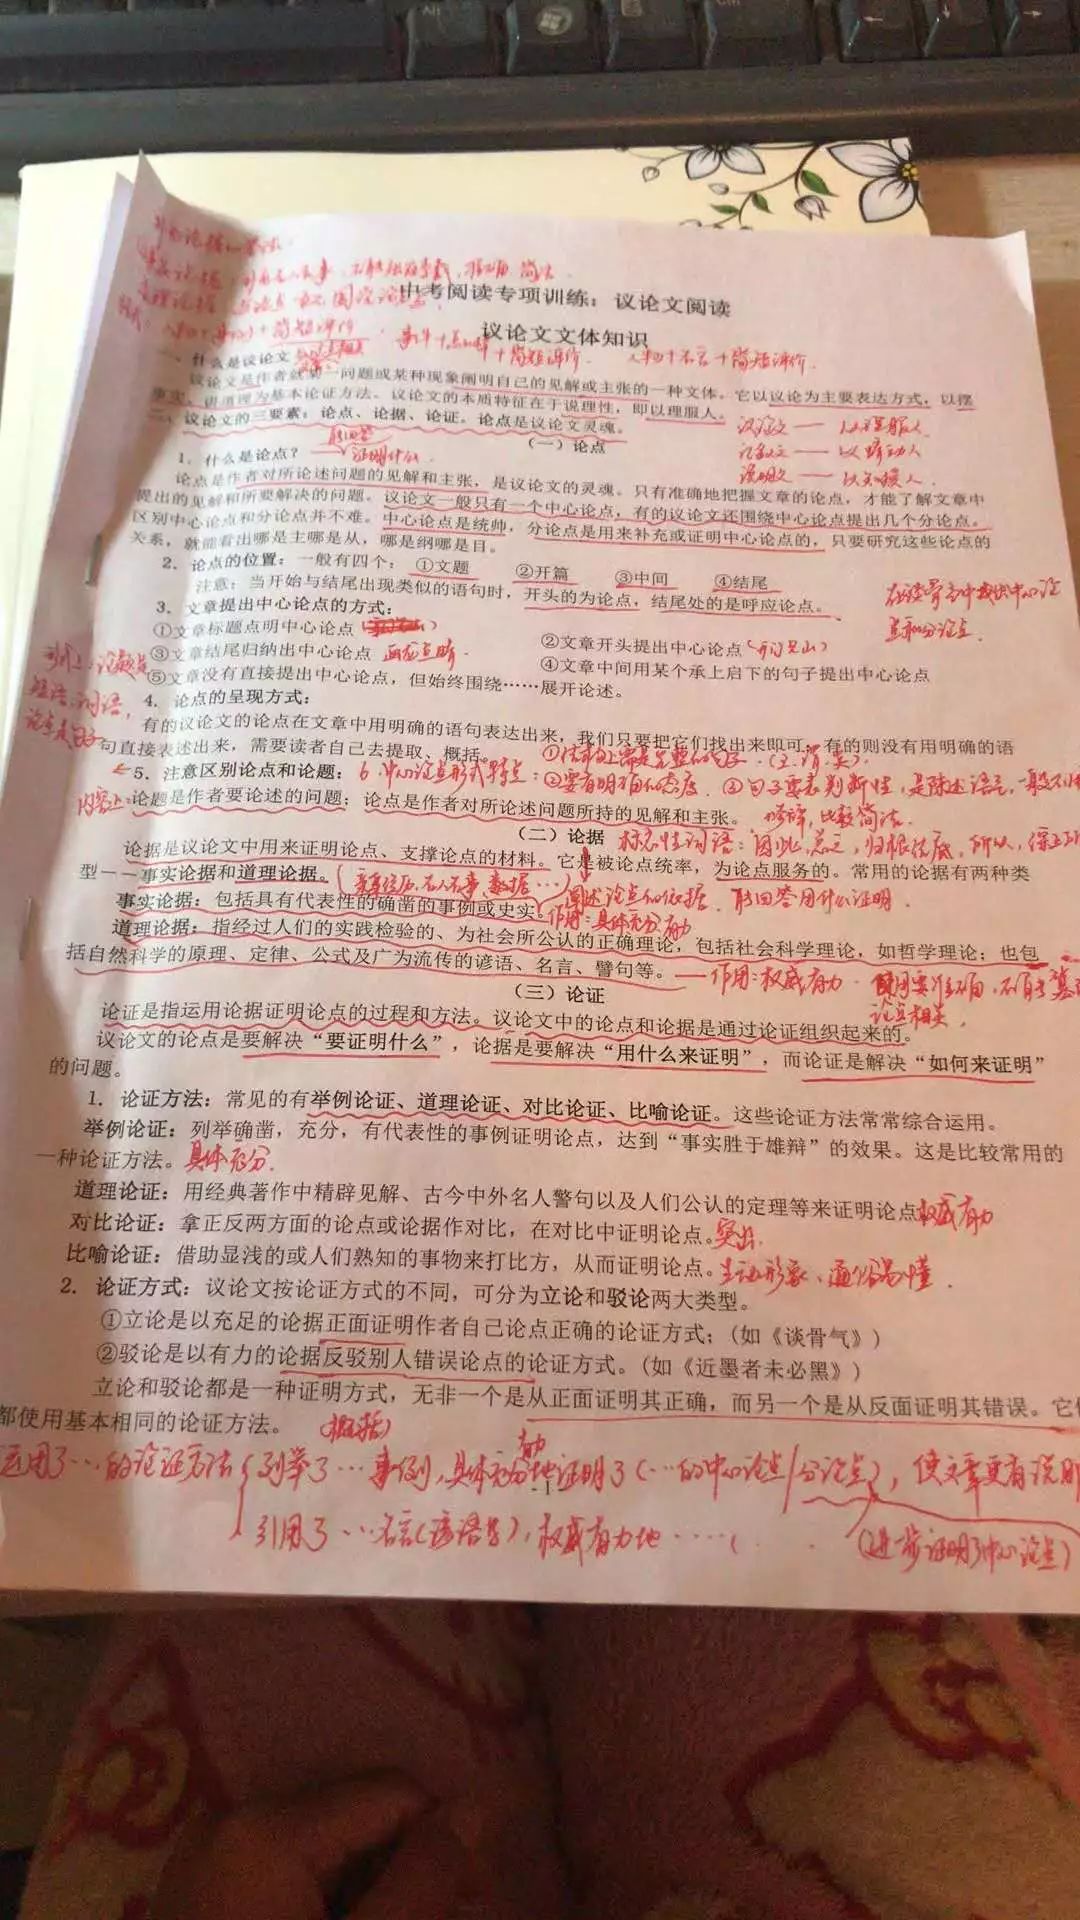 补充论据的方法
中考阅读专项训练：议论文阅读
议论文文体知识
事例+点的解+简短评价. 人物+名言+简短评价.
一、什么是议论文
议论文是作者就某一问题或某种现象阐明自己的见解或主张的一种文体。它以议论为主要表达方式，以摆
事实、讲道理为基本论证方法。议论文的本质特征在于说理性，即以理服人。
二、议论文的三要素：论点、论据、论证。论点是议论文灵魂。
议论文——以理服人.
记叙文——以情动人
说明文——以知授人.
（一）论点
1. 什么是论点？ 证明什么.
论点是作者对所论述问题的见解和主张，是议论文的灵魂。只有准确地把握文章的论点，才能了解文章中
提出的见解和所要解决的问题。议论文一般只有一个中心论点，有的议论文还围绕中心论点提出几个分论点。
区别中心论点和分论点并不难。中心论点是统帅，分论点是用来补充或证明中心论点的，只要研究这些论点的
关系，就能看出哪是主哪是从，哪是纲哪是目。
2. 论点的位置：一般有四个：①文题 ②开篇 ③中间 ④结尾
注意：当开始与结尾出现类似的语句时，开头的为论点，结尾处的是呼应论点。
3. 文章提出中心论点的方式：
①文章标题点明中心论点 ②文章开头提出中心论点（开门见山）
③文章结尾归纳出中心论点 画龙点睛 ④文章中间用某个承上启下的句子提出中心论点
⑤文章没有直接提出中心论点，但始终围绕……展开论述。
4. 论点的呈现方式：
有的议论文的论点在文章中用明确的语句表达出来，我们只要把它们找出来即可，有的则没有用明确的语
句直接表述出来，需要读者自己去提取、概括。
形式上：论题是
短语、词语，
论点是句子
5. 注意区别论点和论题： 6. 中心论点形式特点：
②要有明确的态度. ③句子要表判断性，是陈述语气，
内容上：论题是作者要论述的问题；论点是作者对所论述问题所持的见解和主张。 比较简洁.
（二）论据 标志性词语：因此，总之，归根结底，所以，综上所
论据是议论文中用来证明论点、支撑论点的材料。它是被论点统率，为论点服务的。常用的论据有两种类
型——事实论据和道理论据。 阐述论点的依据. 回答用什么证明.
事实论据：包括具有代表性的确凿的事例或史实。 作用：具体充分有力
道理论据：指经过人们的实践检验的、为社会所公认的正确理论，包括社会科学理论，如哲学理论；也包
括自然科学的原理、定律、公式及广为流传的谚语、名言、警句等。——作用：权威有力.
（三）论证
论证是指运用论据证明论点的过程和方法。议论文中的论点和论据是通过论证组织起来的。
议论文的论点是要解决“要证明什么”，论据是要解决“用什么来证明”，而论证是解决“如何来证明”
的问题。
1. 论证方法：常见的有举例论证、道理论证、对比论证、比喻论证。这些论证方法常常综合运用。
举例论证：列举确凿，充分，有代表性的事例证明论点，达到“事实胜于雄辩”的效果。这是比较常用的
一种论证方法。具体充分.
道理论证：用经典著作中精辟见解、古今中外名人警句以及人们公认的定理等来证明论点 权威有力
对比论证：拿正反两方面的论点或论据作对比，在对比中证明论点。突出.
比喻论证：借助显浅的或人们熟知的事物来打比方，从而证明论点。生动形象、通俗易懂.
2. 论证方式：议论文按论证方式的不同，可分为立论和驳论两大类型。
①立论是以充足的论据正面证明作者自己论点正确的论证方式；（如《谈骨气》）
②驳论是以有力的论据反驳别人错误论点的论证方式。（如《近墨者未必黑》）
立论和驳论都是一种证明方式，无非一个是从正面证明其正确，而另一个是从反面证明其错误。它
都使用基本相同的论证方法。
（概括）
运用了…的论证方法 列举了…事例，具体充分有力地证明了（…的中心论点/分论点），使文章更有说
引用了…名言（谚语等），权威有力地……
（进一步证明了中心论点）